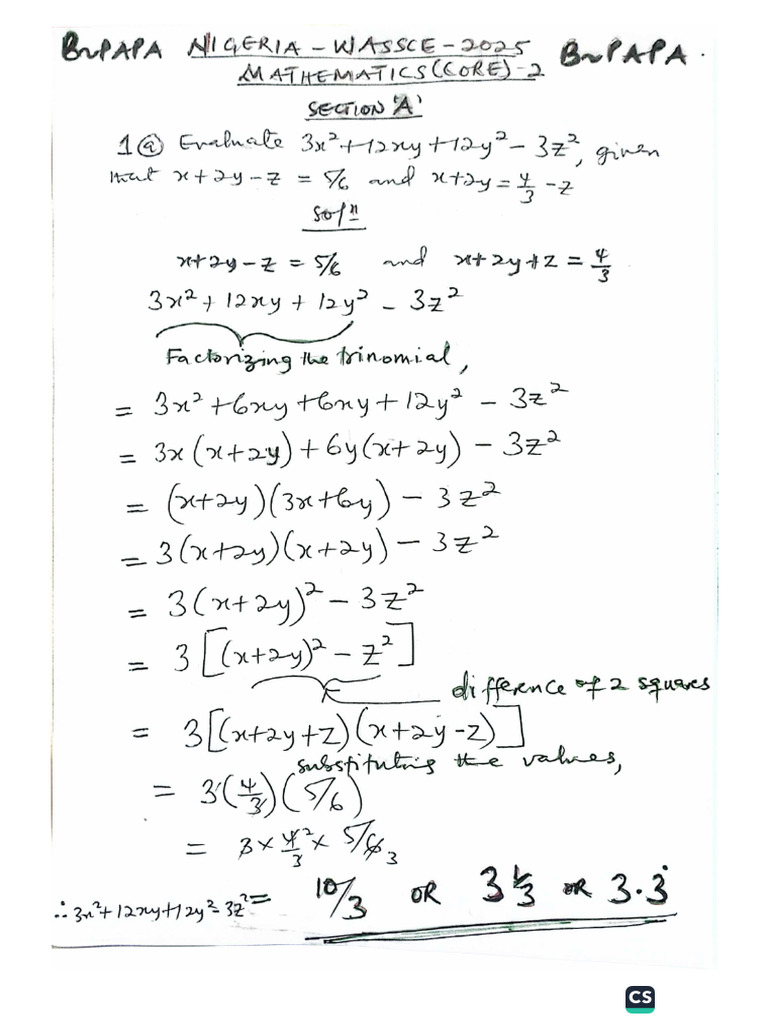 BrPAPA NIGERIA - WASSCE - 2025 BrPAPA.
MATHEMATICS (CORE) - 2
SECTION 'A'
1 (a) Evaluate 3x² + 12xy + 12y² - 3z², given
that x + 2y - z = 5/6 and x + 2y = 4/3 - z
Solⁿ
x + 2y - z = 5/6 and x + 2y + z = 4/3
3x² + 12xy + 12y² - 3z²
Factorizing the trinomial,
= 3x² + 6xy + 6xy + 12y² - 3z²
= 3x(x + 2y) + 6y(x + 2y) - 3z²
= (x + 2y)(3x + 6y) - 3z²
= 3(x + 2y)(x + 2y) - 3z²
= 3(x + 2y)² - 3z²
= 3[(x + 2y)² - z²]
difference of 2 squares
= 3[(x + 2y + z)(x + 2y - z)]
substituting the values,
= 3(4/3)(5/6)
= 3 × 4²/3 × 5/6 3
∴ 3x² + 12xy + 12y² - 3z² = 10/3 OR 3 1/3 OR 3.3̇
CS